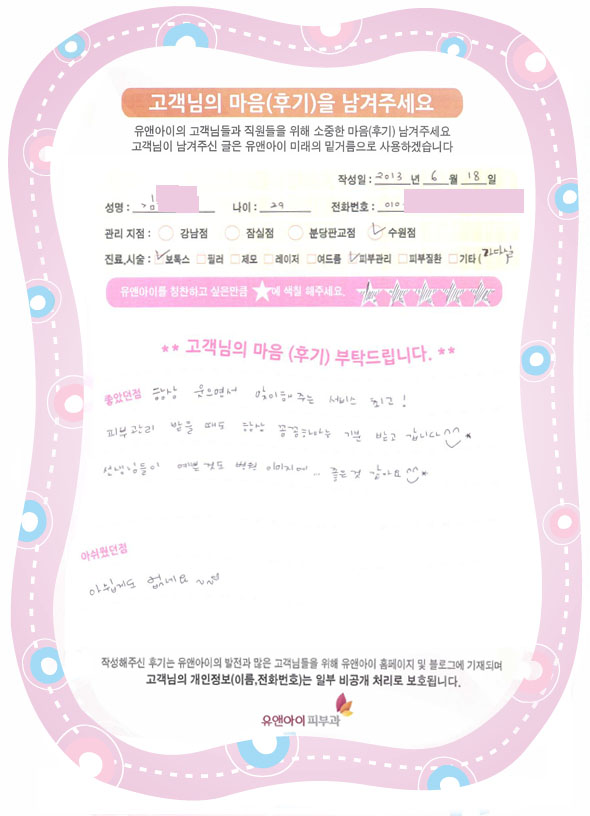 고객님의 마음(후기)을 남겨주세요
유앤아이의 고객님들과 직원들을 위해 소중한 마음(후기) 남겨주세요
고객님이 남겨주신 글은 유앤아이 미래의 밑거름으로 사용하겠습니다
작성일 : 2013 년 6 월 18 일
성명 : 김 나이 : 29 전화번호 : 010-
관리 지점 : 강남점 잠실점 분당판교점 수원점
진료,시술 : 보톡스 필러 제모 레이저 여드름 피부관리 피부질환 기타 (
유앤아이를 칭찬하고 싶은만큼 ★에 색칠 해주세요.
** 고객님의 마음 (후기) 부탁드립니다. **
좋았던점 항상 웃으면서 맞이해주는 서비스 최고!
피부관리 받을 때도 항상 꼼꼼하다는 기분 받고 갑니다^^*
선생님들이 예쁜것도 병원 이미지에... 좋은것 같아요^^*
아쉬웠던점
아쉽게도 없네요
작성해주신 후기는 유앤아이의 발전과 많은 고객님들을 위해 유앤아이 홈페이지 및 블로그에 기재되며
고객님의 개인정보(이름,전화번호)는 일부 비공개 처리로 보호됩니다.
유앤아이피부과